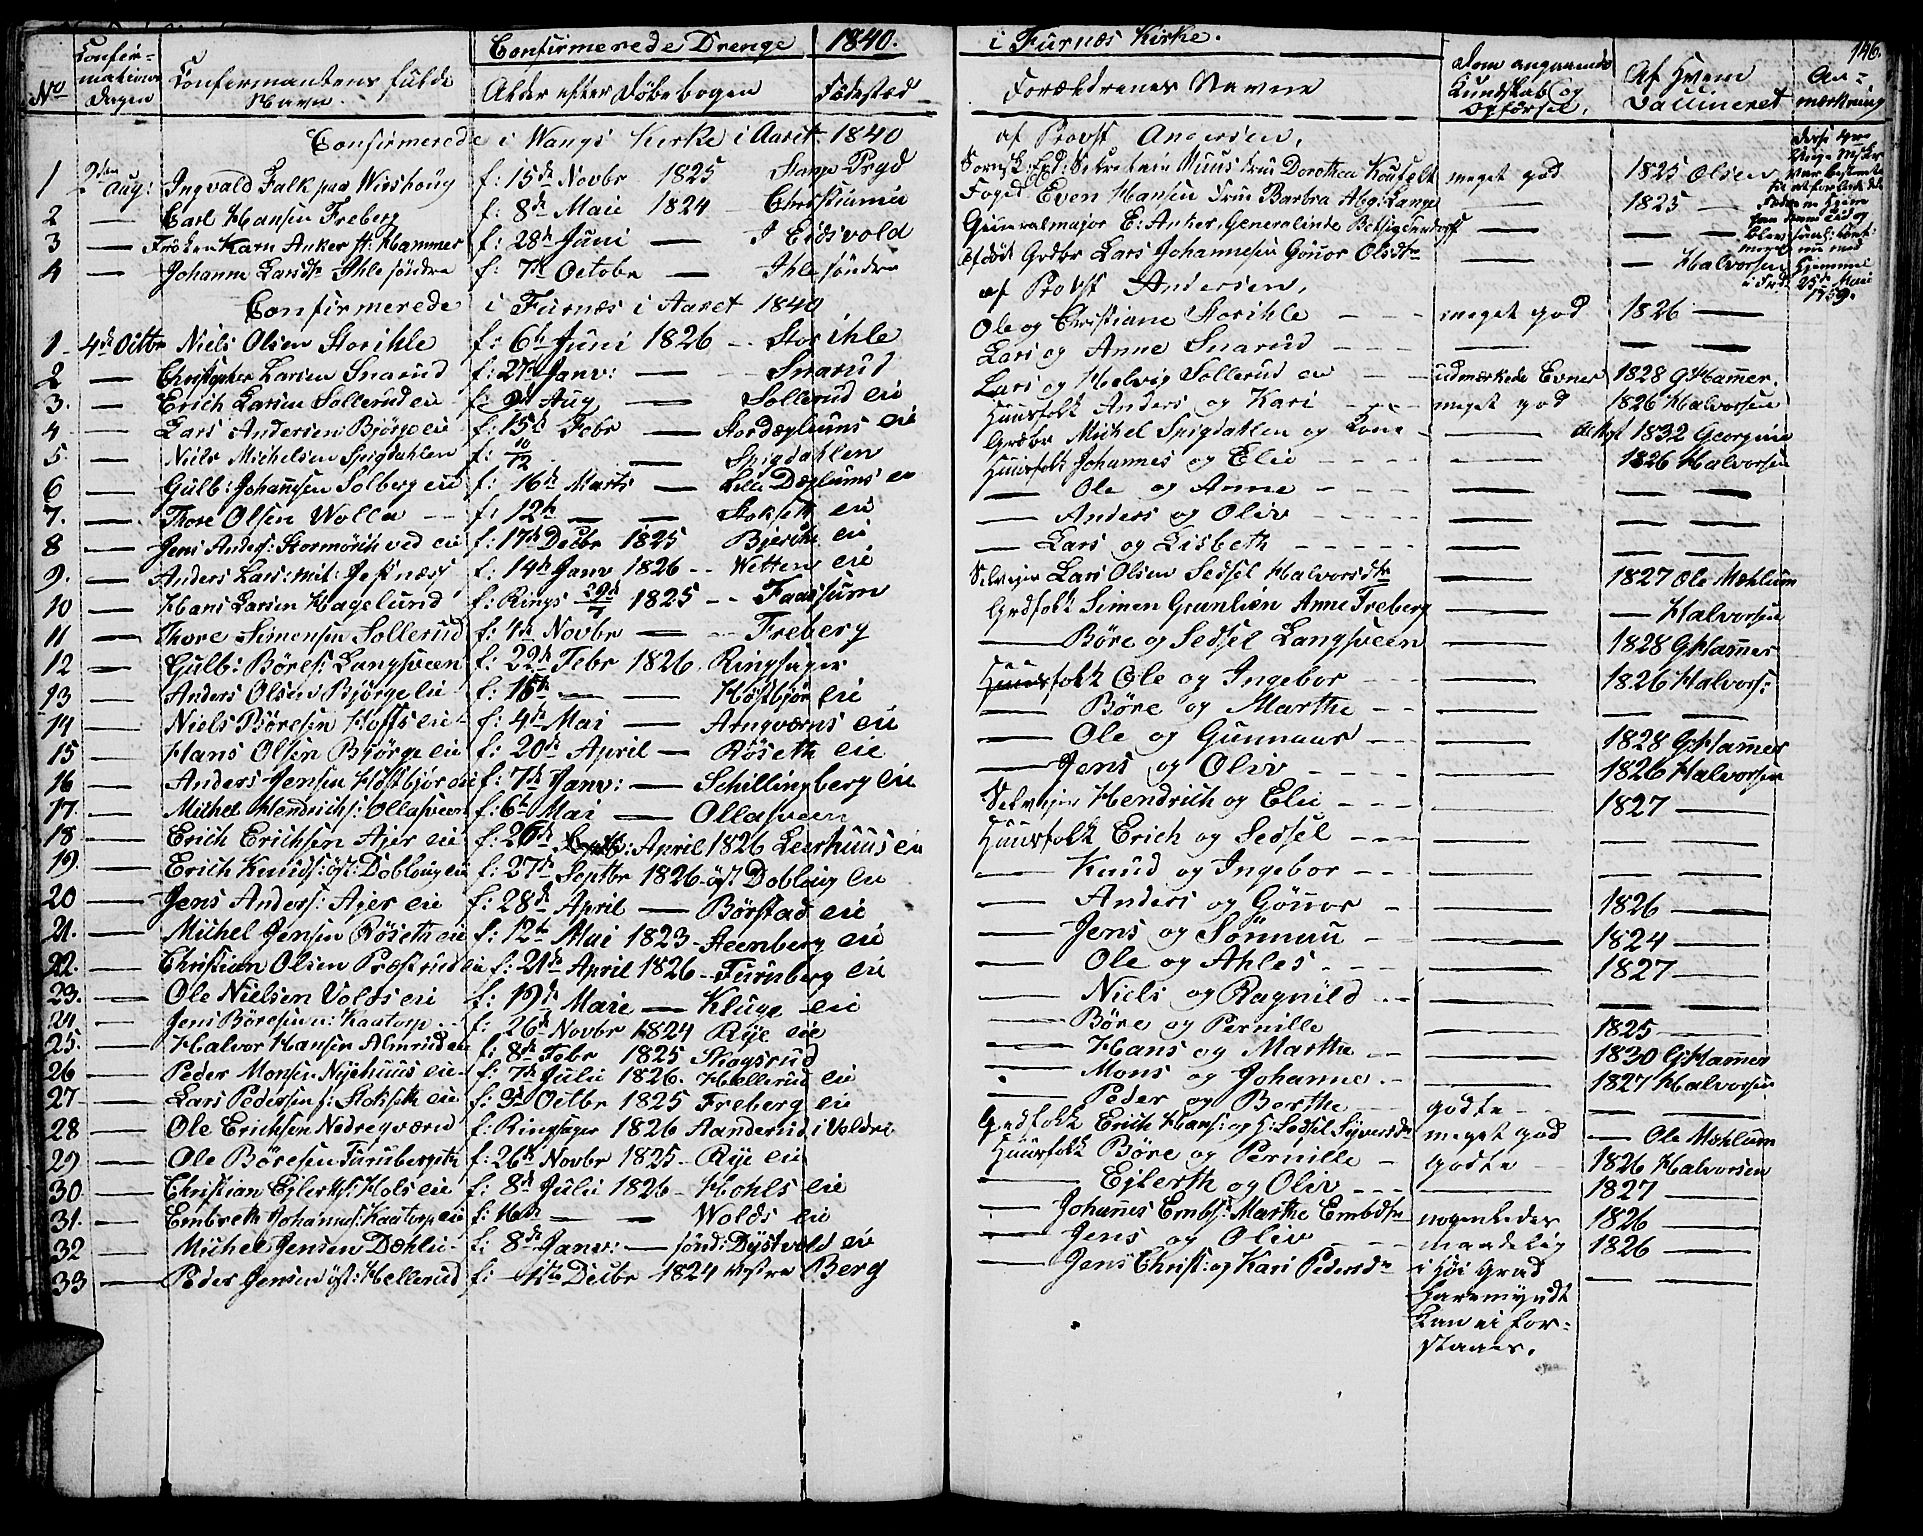 Confirmerede Drenge 1840. i Furnæs Kirke. 146.
No Confirmations Dagen Confirmantens fulde Navn. Alder efter Døbebogen Fødested Forældrenes Navne Dom angaaende Kundskab og Opførsel. Af Hvem Vaccineret Anmærkning
Confirmerede i Wangs Kirke i Aaret 1840 af Provst Andersen.
1 2den Aug: Ingvald Falk paa f: 15de Novbr 1825 Stange Prgd Dorothea meget god 1825 Olsen
2 — Carl Hansen Freberg f: 8de Mai 1824 Christiania Foged Even Hansen Fru Barbra Lange — 1825 —
3 — Frøken Karn Anker H: Hammer f: 28de Juni — Eidsvold Generalmajor E: Anker, Generalinde — — —
4 — Johanne Larsdtr Ihle søndre f: 7de Octobr — Ihle søndre Lars Johannesen Gønor Olsdtr — — Halvorsen
Confirmerede i Furnæs i Aaret 1840 af Provst Andersen.
1 4de Octbr Niels Olsen Storihle f: 6te Juni 1826 Storihle Ole og Christiane Storihle meget god 1826 —
2 — Christopher Larsen Snarud f: 27de Janv: — Snarud Lars og Anne Snarud — — —
3. — Erich Larsen Sollerud eie f: Aug — Sollerud eie Lars og Helvig Sollerud eie udmærkede Evner 1828 G Hamer.
4 — Lars Andersen Bjørge eie f: 15de Febr — Stordæhlums eie Huusfolk Anders og Kari meget god 1826 Halvorsen
5 — Niels Michelsen Spigdahlen f: 10/12 — Spigdahlen Grdbr Michel Spigdahlen og Kone — Attest 1832 Georgine
6 — Gulb: Johanesen Solberg eie f: 16de Marts — Lille Dæhlums eie Huusfolk Johannes og Elie — 1826 Halvorsen
7. — Thore Olsen Wolla f: 12te — — Stokseth eie — Ole og Anne — — —
8 — Jens Anders: Stormørch ved eie f: 17de Decbr 1825 Bjerche eie — Anders og Oliv — — —
9. — Anders Lars: mit: Jessnæss f: 14de Janv 1826 Wetten eie — Lars og Lisbeth — — —
10 — Hans Larsen Hagelund f: Rings 29de/7 1825 Faassum Selveier Lars Olsen Sedsel Halvorsdtr — 1827 Ole Mæhlum
11 — Thore Simensen Sollerud f: 4de Novbr — Freberg Grdfolk Simen Grønlien Anne Freberg — — Halvorsen
12 — Gulb: Børes: Langsveen f: 22de Febr 1826. Ringsager — Børe og Sedsel Langsveen — 1828 G Hamer
13 — Anders Olsen Bjørge eie f: 15de — — Høstbjør eie Huusfolk Ole og Ingebor — 1826 Halvors:
14 — Niels Børesen Hoffs eie f: 4de Mai — Arngværns eie — Børe og Marthe — — —
15 — Hans Olsen Bjørge eie f: 20de April — Røseth eie — Ole og Gunnaur — 1828 G Hamer
16 — Anders Jensen Høstbjør eie f: 7de Janv: — Schillingberg eie — Jens og Oliv — 1826 Halvorsen
17. — Michel Hendrichs: Ollasveen f: 6te Mai — Ollasveen Selveier Hendrich og Elie — 1827 —
18 — Erich Erichsen Ajer eie f: 26de April 1826 Leerhuus eie Huusfolk Erich og Sedsel — — —
19. — Erich Knuds: øst: Dobloug eie f: 27de Septbr 1826 øst Doblaug eie — Knud og Ingebor — — —
20 — Jens Anders: Ajer eie f: 28de April — Børstad eie — Anders og Gønor — 1826 —
21. — Michel Jensen Røseth eie f: 12te Mai 1823 Steenberg eie — Jens og Sørinau — 1824 —
22. — Christian Olsen Præstrud eie f: 21de April 1826 Furuberg eie — Ole og Ahles — 1827 —
23. — Ole Nielsen Volds eie f: 19de Marie — Kluge eie — Niels og Ragnild — — —
24 — Jens Børesen n: Kaatorp f: 26de Novbr 1824 Rye eie — Børe og Pernille — 1825 —
25. — Halvor Hansen Almrud eie f: 8de Febr 1825 Skogsrud — Hans og Marthe — 1830 G Hamer
26 — Peder Monsen Nyehuus eie f: 7de Julii 1826. Hellerud eie — Mons og Johanne — 1827 Halvorsen
27 — Lars Pedersen s: Stokseth eie f: 3de Octbr 1825 Freberg eie — Peder og Berthe godte — —
28 — Ole Erichsen Nedregværn f: Ringsager 1826 Aanderud i Voldre Grdfolk Erich Hans: og H: Sedsel Syversdtr meget god — Ole Mæhlum
29 — Ole Børesen Furuberg f: 26de Novbr 1825 Rye eie Huusfolk Børe og Pernille godte 1826 Halvorsen
30 — Christian Ejlerths: Hols eie f: 8de Julii 1826 Hohls eie — Ejlerth og Oliv — 1827 —
31. — Embreth Johannes: Kaatorp eie f: 16de — — Wolds eie — Johanes Embs: Marthe Embdtr nogenledes 1826 —
32 — Michel Jensen Dæhlie f: 8de Janv: — sønd: Dystvold eie — Jens og Oliv maadelig 1826 —
33 — Peder Jensen øst: Hellerud f: Decbr 1824 vestre Berg — Jens Christ: og Kari Pedersdtr i høi Grad — —
haremyndt
kan ei for-
staaes.